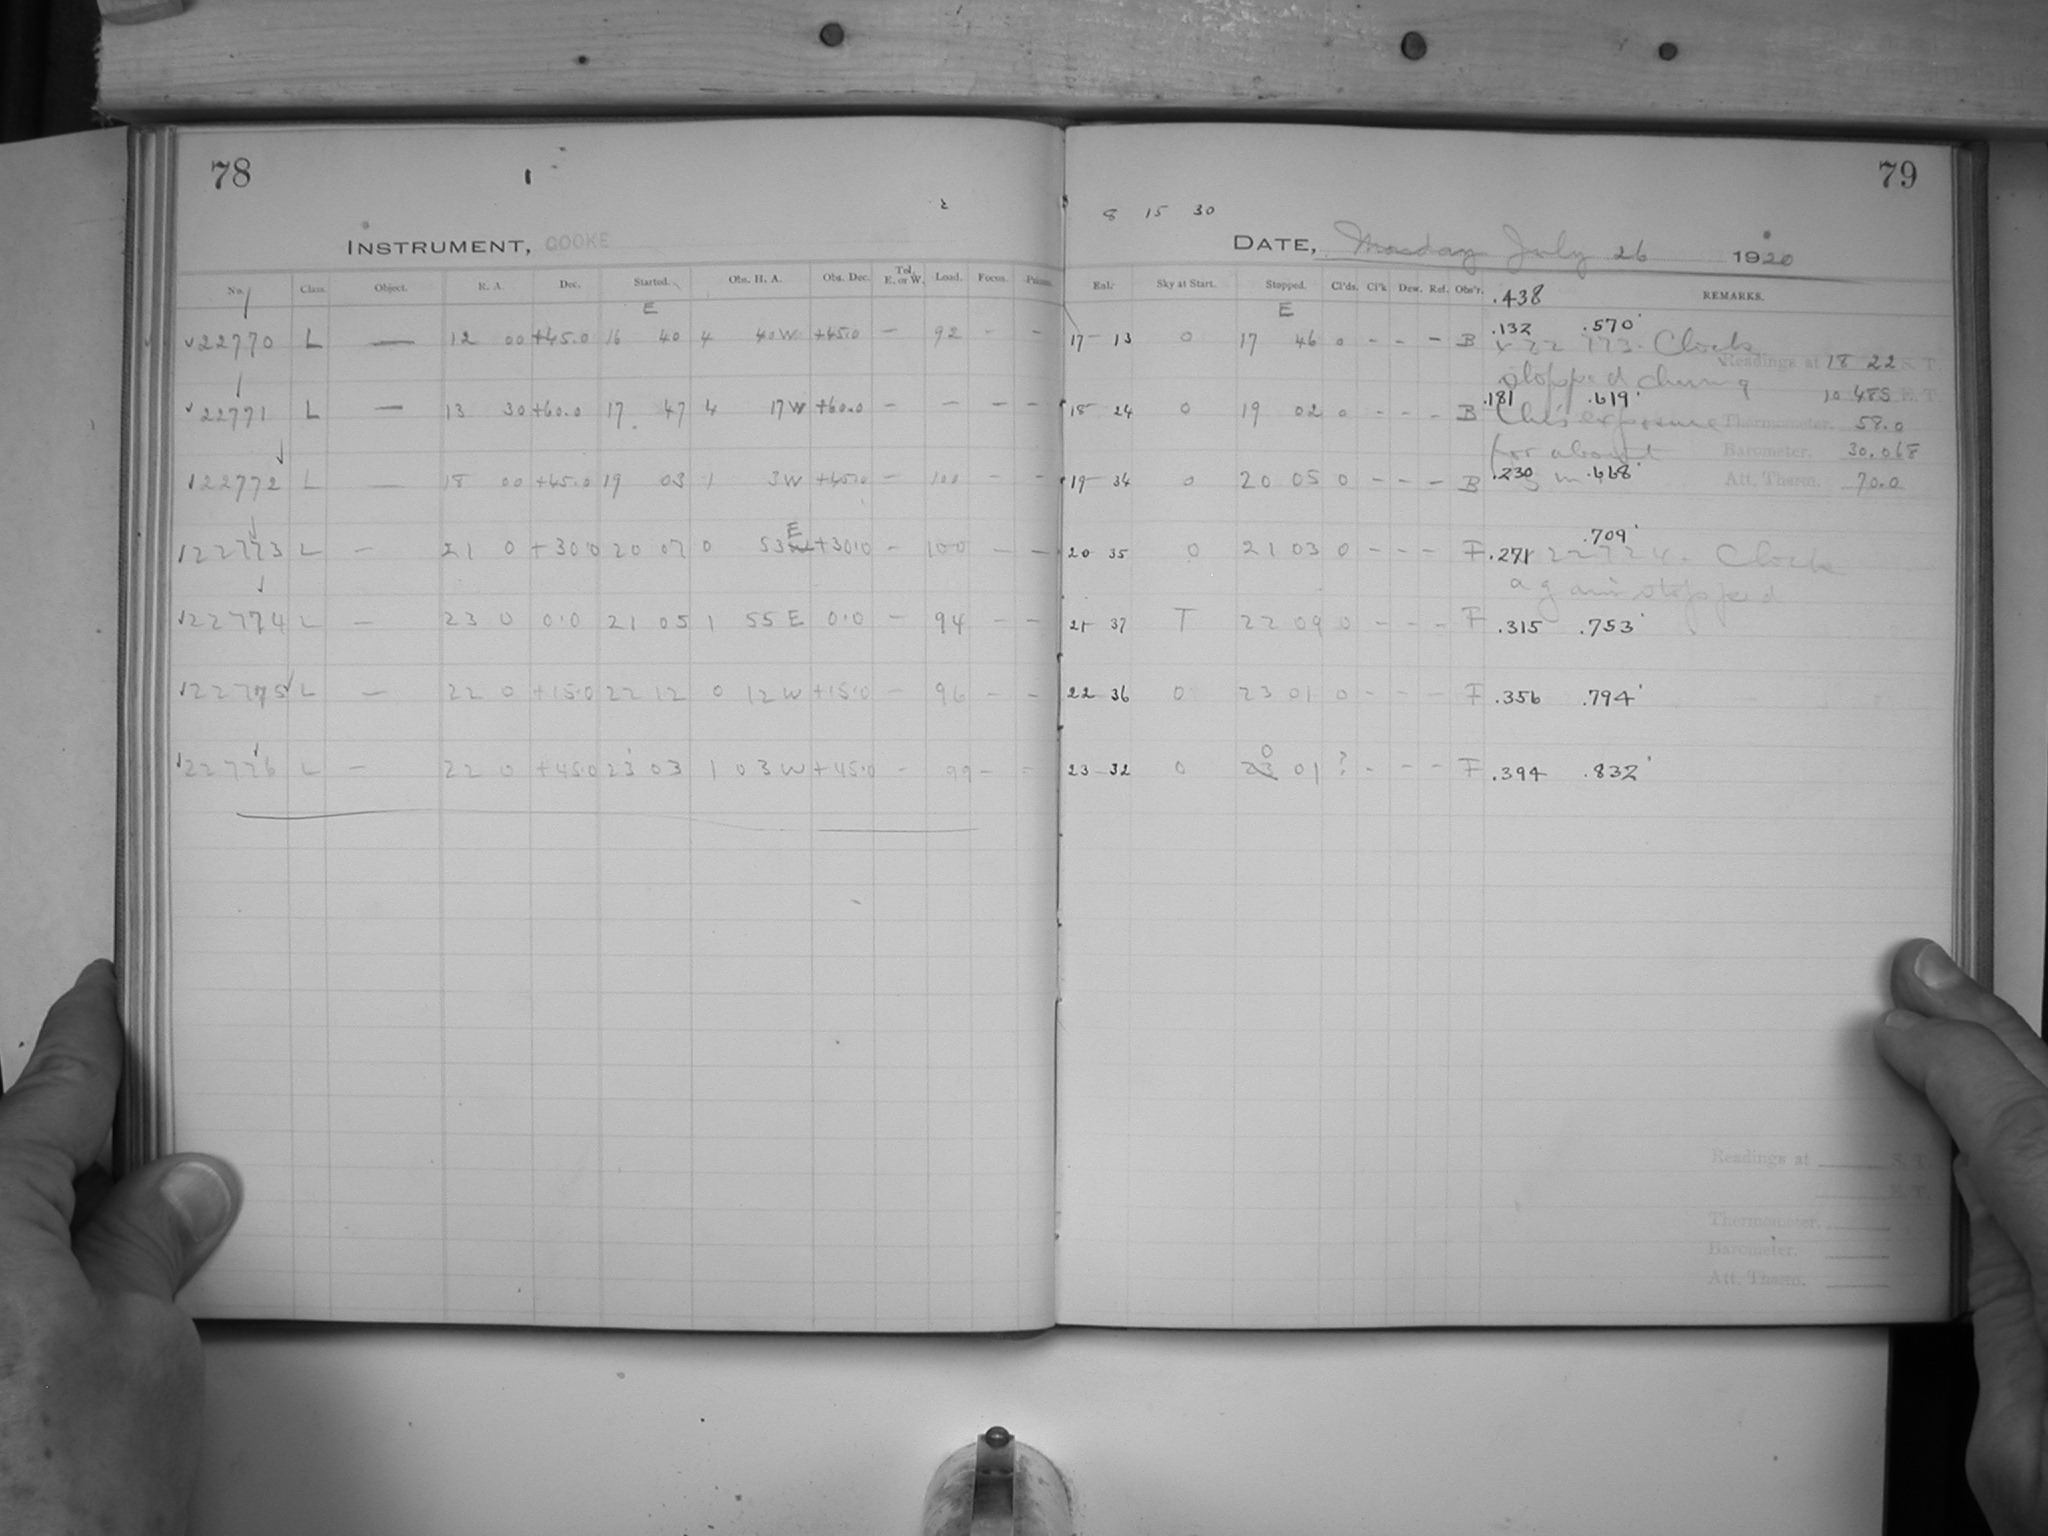 78
INSTRUMENT, COOKE
No. Class. Object. R. A. Dec. Started. Obs. H. A. Obs. Dec. Tel. E. or W. Load. Focus. Prisms.
E
22770 L — 12 00 +45.0 16 40 4 40W +45.0 — 92 - -
22771 L — 13 30 +60.0 17 47 4 17W +60.0 - - - -
22772 L — 18 00 +45.0 19 03 1 3W +45.0 - 100 - -
22773 L — 21 0 +30.0 20 07 0 53E +30.0 - 100 - -
22774 L — 23 0 0.0 21 05 1 55E 0.0 - 94 - -
22775 L — 22 0 +15.0 22 12 0 12W +15.0 - 96 - -
22776 L — 22 0 +45.0 23 03 1 03W +45.0 - 99 - -
79
8 15 30
DATE, Monday July 26 1920
Exl. Sky at Start. Stopped. Cl'ds. Cl'k Dew. Ref. Obs'r. REMARKS.
E .438
17-13 0 17 46 0 - - - B .132 .570
22773. Clock
Readings at 18 22 S. T.
stopped during
18-24 0 19 02 0 - - - B .181 .619
10 485 E. T.
this exposure
Thermometer. 58.0
for about
Barometer. 30.068
19-34 0 20 05 0 - - - B .230 .668
m
Att. Therm. 70.0
20 35 0 21 03 0 - - - F .271 .709
22774. Clock
again stopped
21-37 T 22 09 0 - - - F .315 .753
22-36 0 23 01 0 - - - F .356 .794
23-32 0 23 0 01 ? - - - F .394 .832
Readings at S. T.
E. T.
Thermometer.
Barometer.
Att. Therm.